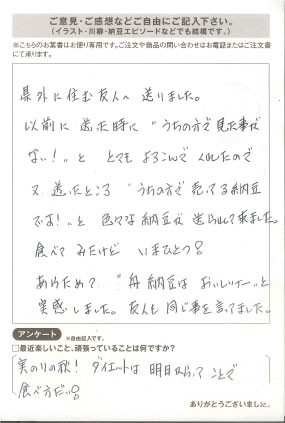 ご意見・ご感想などご自由にご記入下さい。
(イラスト・川柳・納豆エピソードなどでも結構です。)
※こちらのお葉書はお便り専用です。ご注文や商品の問い合わせはお電話またはご注文書
にて承ります。
県外に住む友人へ 送りました。
以前に 送った時に “うちの方で見た事が
ない!”と とても よろこんで くれたので
又 送ったところ “うちの方で 売ってる納豆
です!”と 色々な納豆が 送られて来ました。
食べて みたけど いまひとつ
あらためて “舟納豆は おいしいー”と
実感しました。友人も 同じ事を言ってました。
アンケート
※自由記入です。
□最近楽しいこと、頑張っていることは何ですか?
実のりの秋! ダイエットは 明日からって ことで
食べ方だい
ありがとうございました。